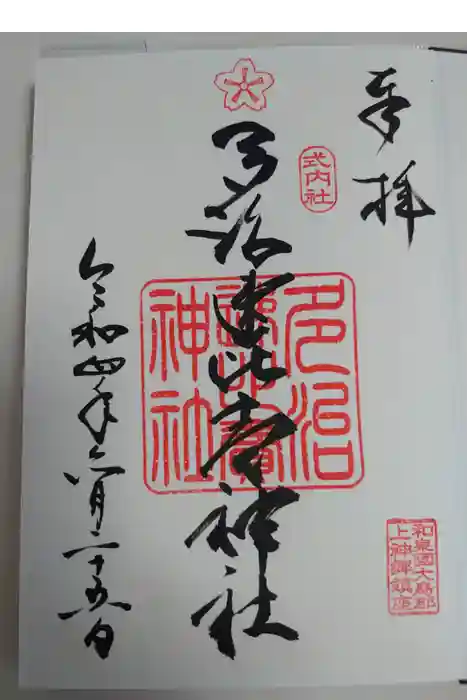 奉拝
式内社
多治速比売神社
多治
速比賣
神社
和泉國大鳥郡
上神郷鎮座
令和四年六月二十五日